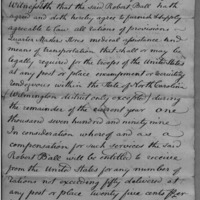 Witnesseth that the said Robert Ball hath
agreed and doth hereby agree to furnish & supply
agreeable to law all rations of provisions
Quarter Master Stores medical assistance and
means of transportation that shall or may be
legally required for the troops of the United States
at any post or place encampment or
rendezvous within the State of North Carolina
Wilmington district only excepted during
the remainder of the current year one
thousand seven hundred and ninety nine.
In consideration whereof and as a
compensation for such services the said
Robert Ball will be intitled to receive
from the United States for any number of
rations not exceeding fifty delivered at
any post or place twenty five cents per